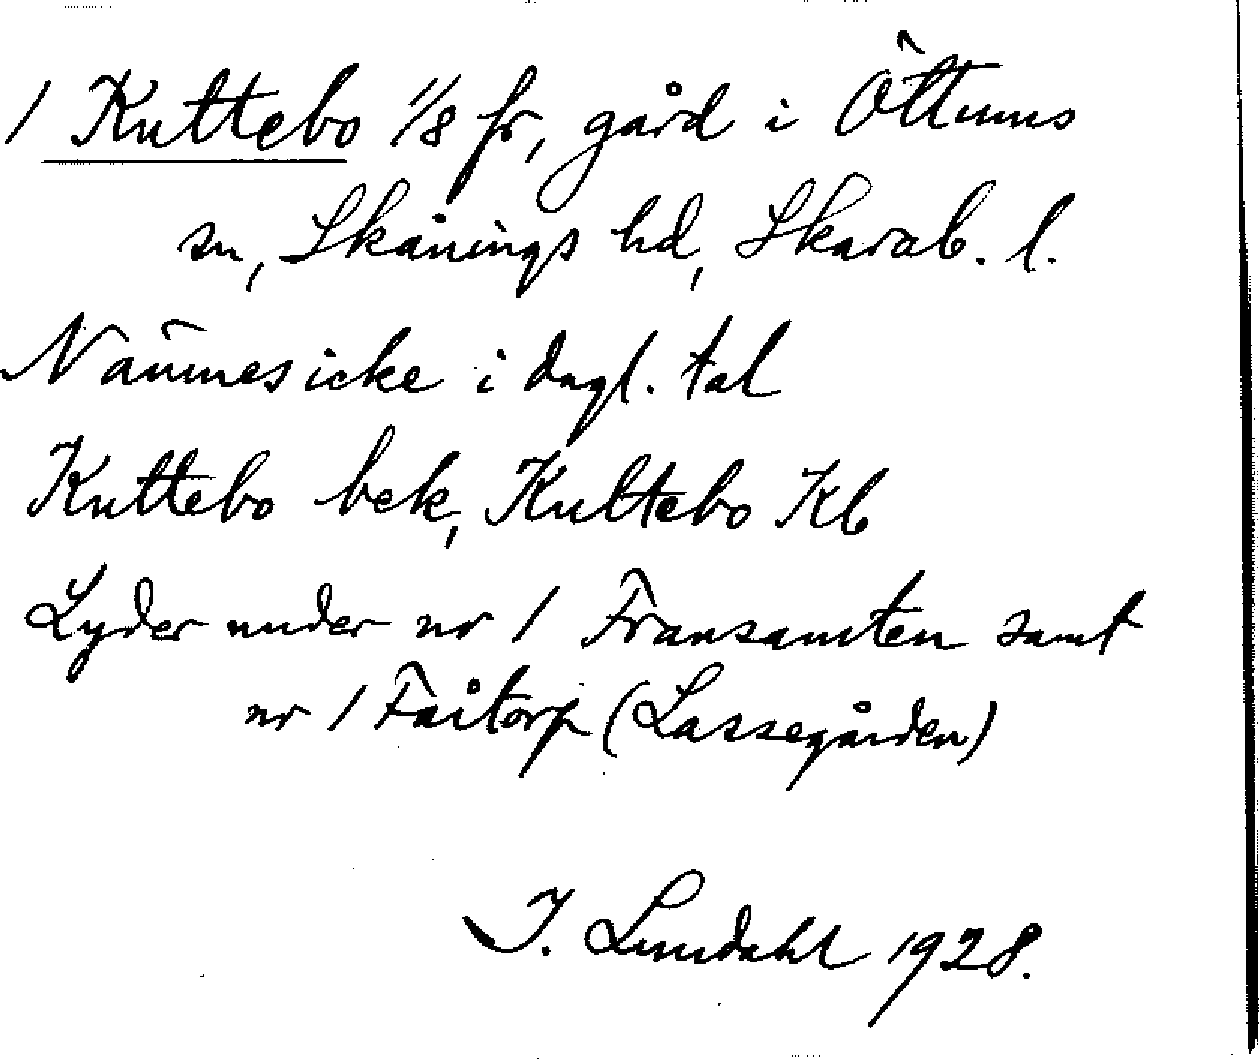 1 Kuttebo 1/8 fr, gård i Öttums
sn, Skånings hd, Skarab. l.
Nämnes icke i dagl. tal
Kuttebo bek, Kultebo Kb
Lyder under nr 1 Fransamten samt
nr 1 Fåtorp (Lassegården)
I. Lundahl 1928.